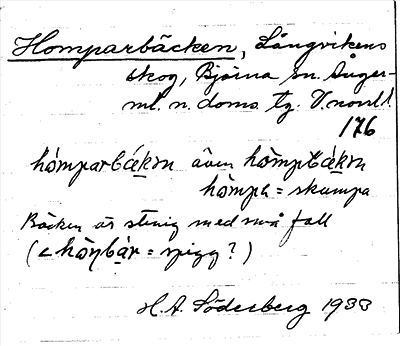 Homparbäcken, Långvikens
skog, Björna sn. Ånger-
ml. n. doms. tg. V.norrl.l.
176
hòmparbä́kɜn även hòmpbä́kɜn
hòmpa = skumpa
Bäcken är stenig med små fall
(< hòṇbạr = spigg?)
H. A. Söderberg 1933